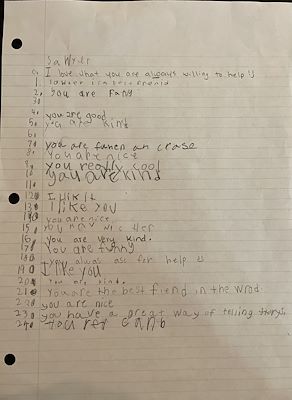 Sawyer
0. I love what you are always willing to help
1.
2. you are Fany
3.
4. you are good
5. you are kind
6.
7. you are funen an crase
8. You are nice
9. you really cool
10. you are kind
11.
12. I liKe It
13. I like you
14. you are nice
15. You
16. you are very kind.
17. You are funny
18. you alwas ass for help
19. I like you
20. you are kind.
21. You are the best fiend in the wrod
22. you are nice
23. you have a great way of telling
24. You rer